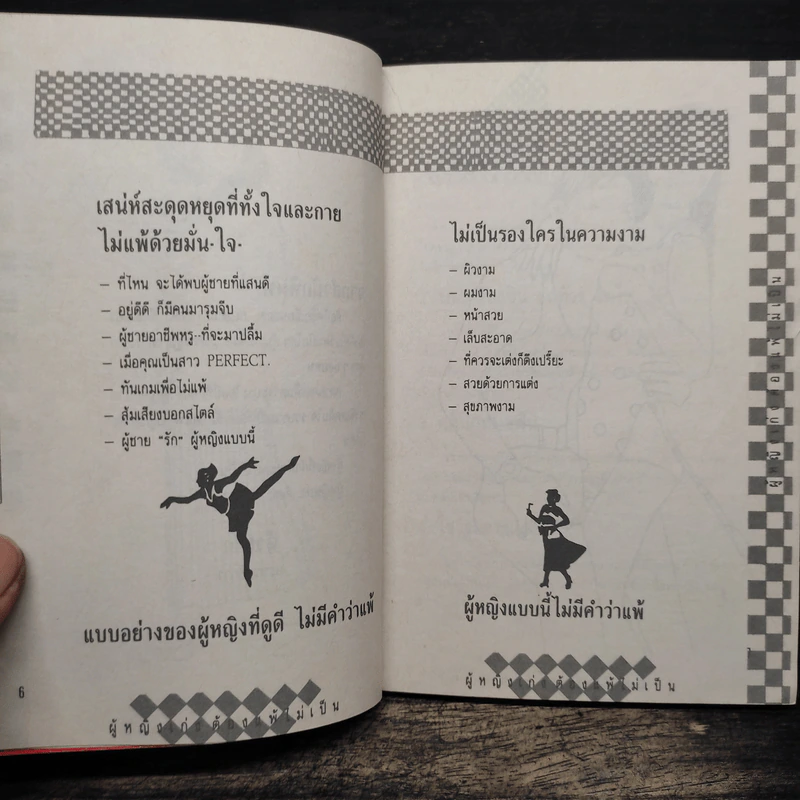 เสน่ห์สะดุดหยุดที่ทั้งใจและกาย
ไม่แพ้ด้วยมั่น·ใจ·
– ที่ไหน จะได้พบผู้ชายที่แสนดี
– อยู่ดีดี ก็มีคนมารุมจีบ
– ผู้ชายอาชีพหรู··ที่จะมาปลื้ม
– เมื่อคุณเป็นสาว PERFECT.
– ทันเกมเพื่อไม่แพ้
– สุ้มเสียงบอกสไตล์
– ผู้ชาย "รัก" ผู้หญิงแบบนี้
แบบอย่างของผู้หญิงที่ดูดี ไม่มีคำว่าแพ้
6
ผู้หญิงเก่งต้องแพ้ไม่เป็น
ไม่เป็นรองใครในความงาม
– ผิวงาม
– ผมงาม
– หน้าสวย
– เล็บสะอาด
– ที่ควรจะเต่งก็ดึงเปรี๊ยะ
– สวยด้วยการแต่ง
– สุขภาพงาม
ผู้หญิงแบบนี้ไม่มีคำว่าแพ้
ผู้หญิงเก่งต้องแพ้ไม่เป็น
ผู้หญิงเก่งต้องแพ้ไม่เป็น